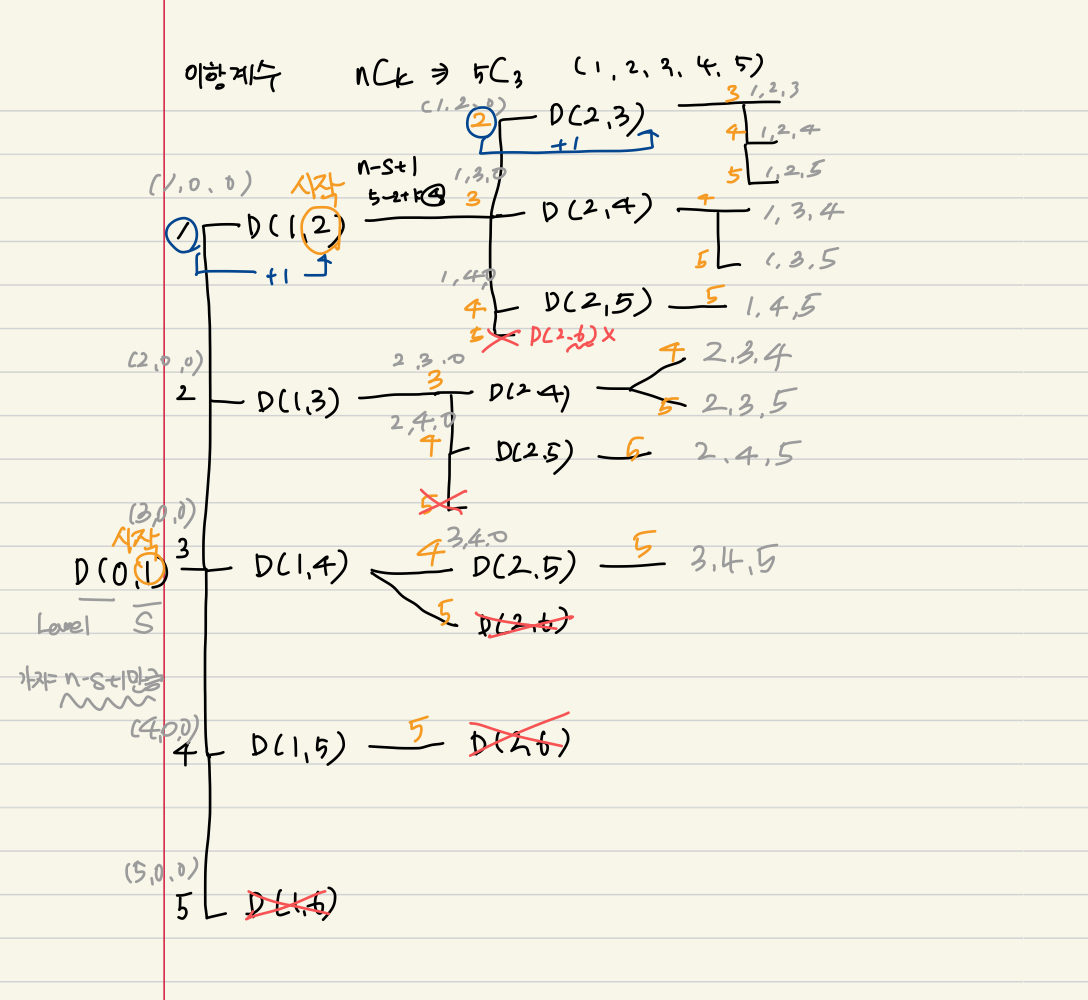 이항계수 nCk ⇒ 5C3 (1, 2, 3, 4, 5)
(1,2,0) 2 D(2,3) 3 1,2,3
+1 4 1,2,4
5 1,2,5
n-s+1
5-2+1 4
1,3,0 3 D(2,4) 4 1,3,4
5 1,3,5
(1,0,0) 시작
1 D(1,2)
+1
1,4,0
4 D(2,5) 5 1,4,5
5 D(2,6) X
(2,0,0) 2,3,0
2 D(1,3) 3 D(2,4) 4 2,3,4
5 2,3,5
2,4,0
4 D(2,5) 5 2,4,5
5
(3,0,0) 3,4,0
시작
D(0,1) 3 D(1,4) 4 D(2,5) 5 3,4,5
Level S 5 D(2,6)
가지= n-s+1만큼
(4,0,0)
4 D(1,5) 5 D(2,6)
(5,0,0)
5 D(1,6)